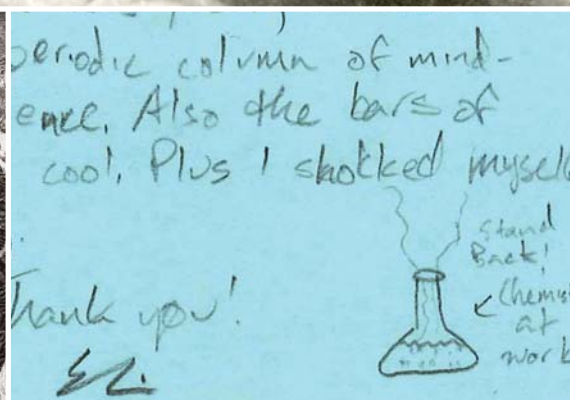 periodic column of mind-
ence. Also the bars of
cool. Plus I shokked myself
Stand
Back!
Thank you!
Chemist
at
work